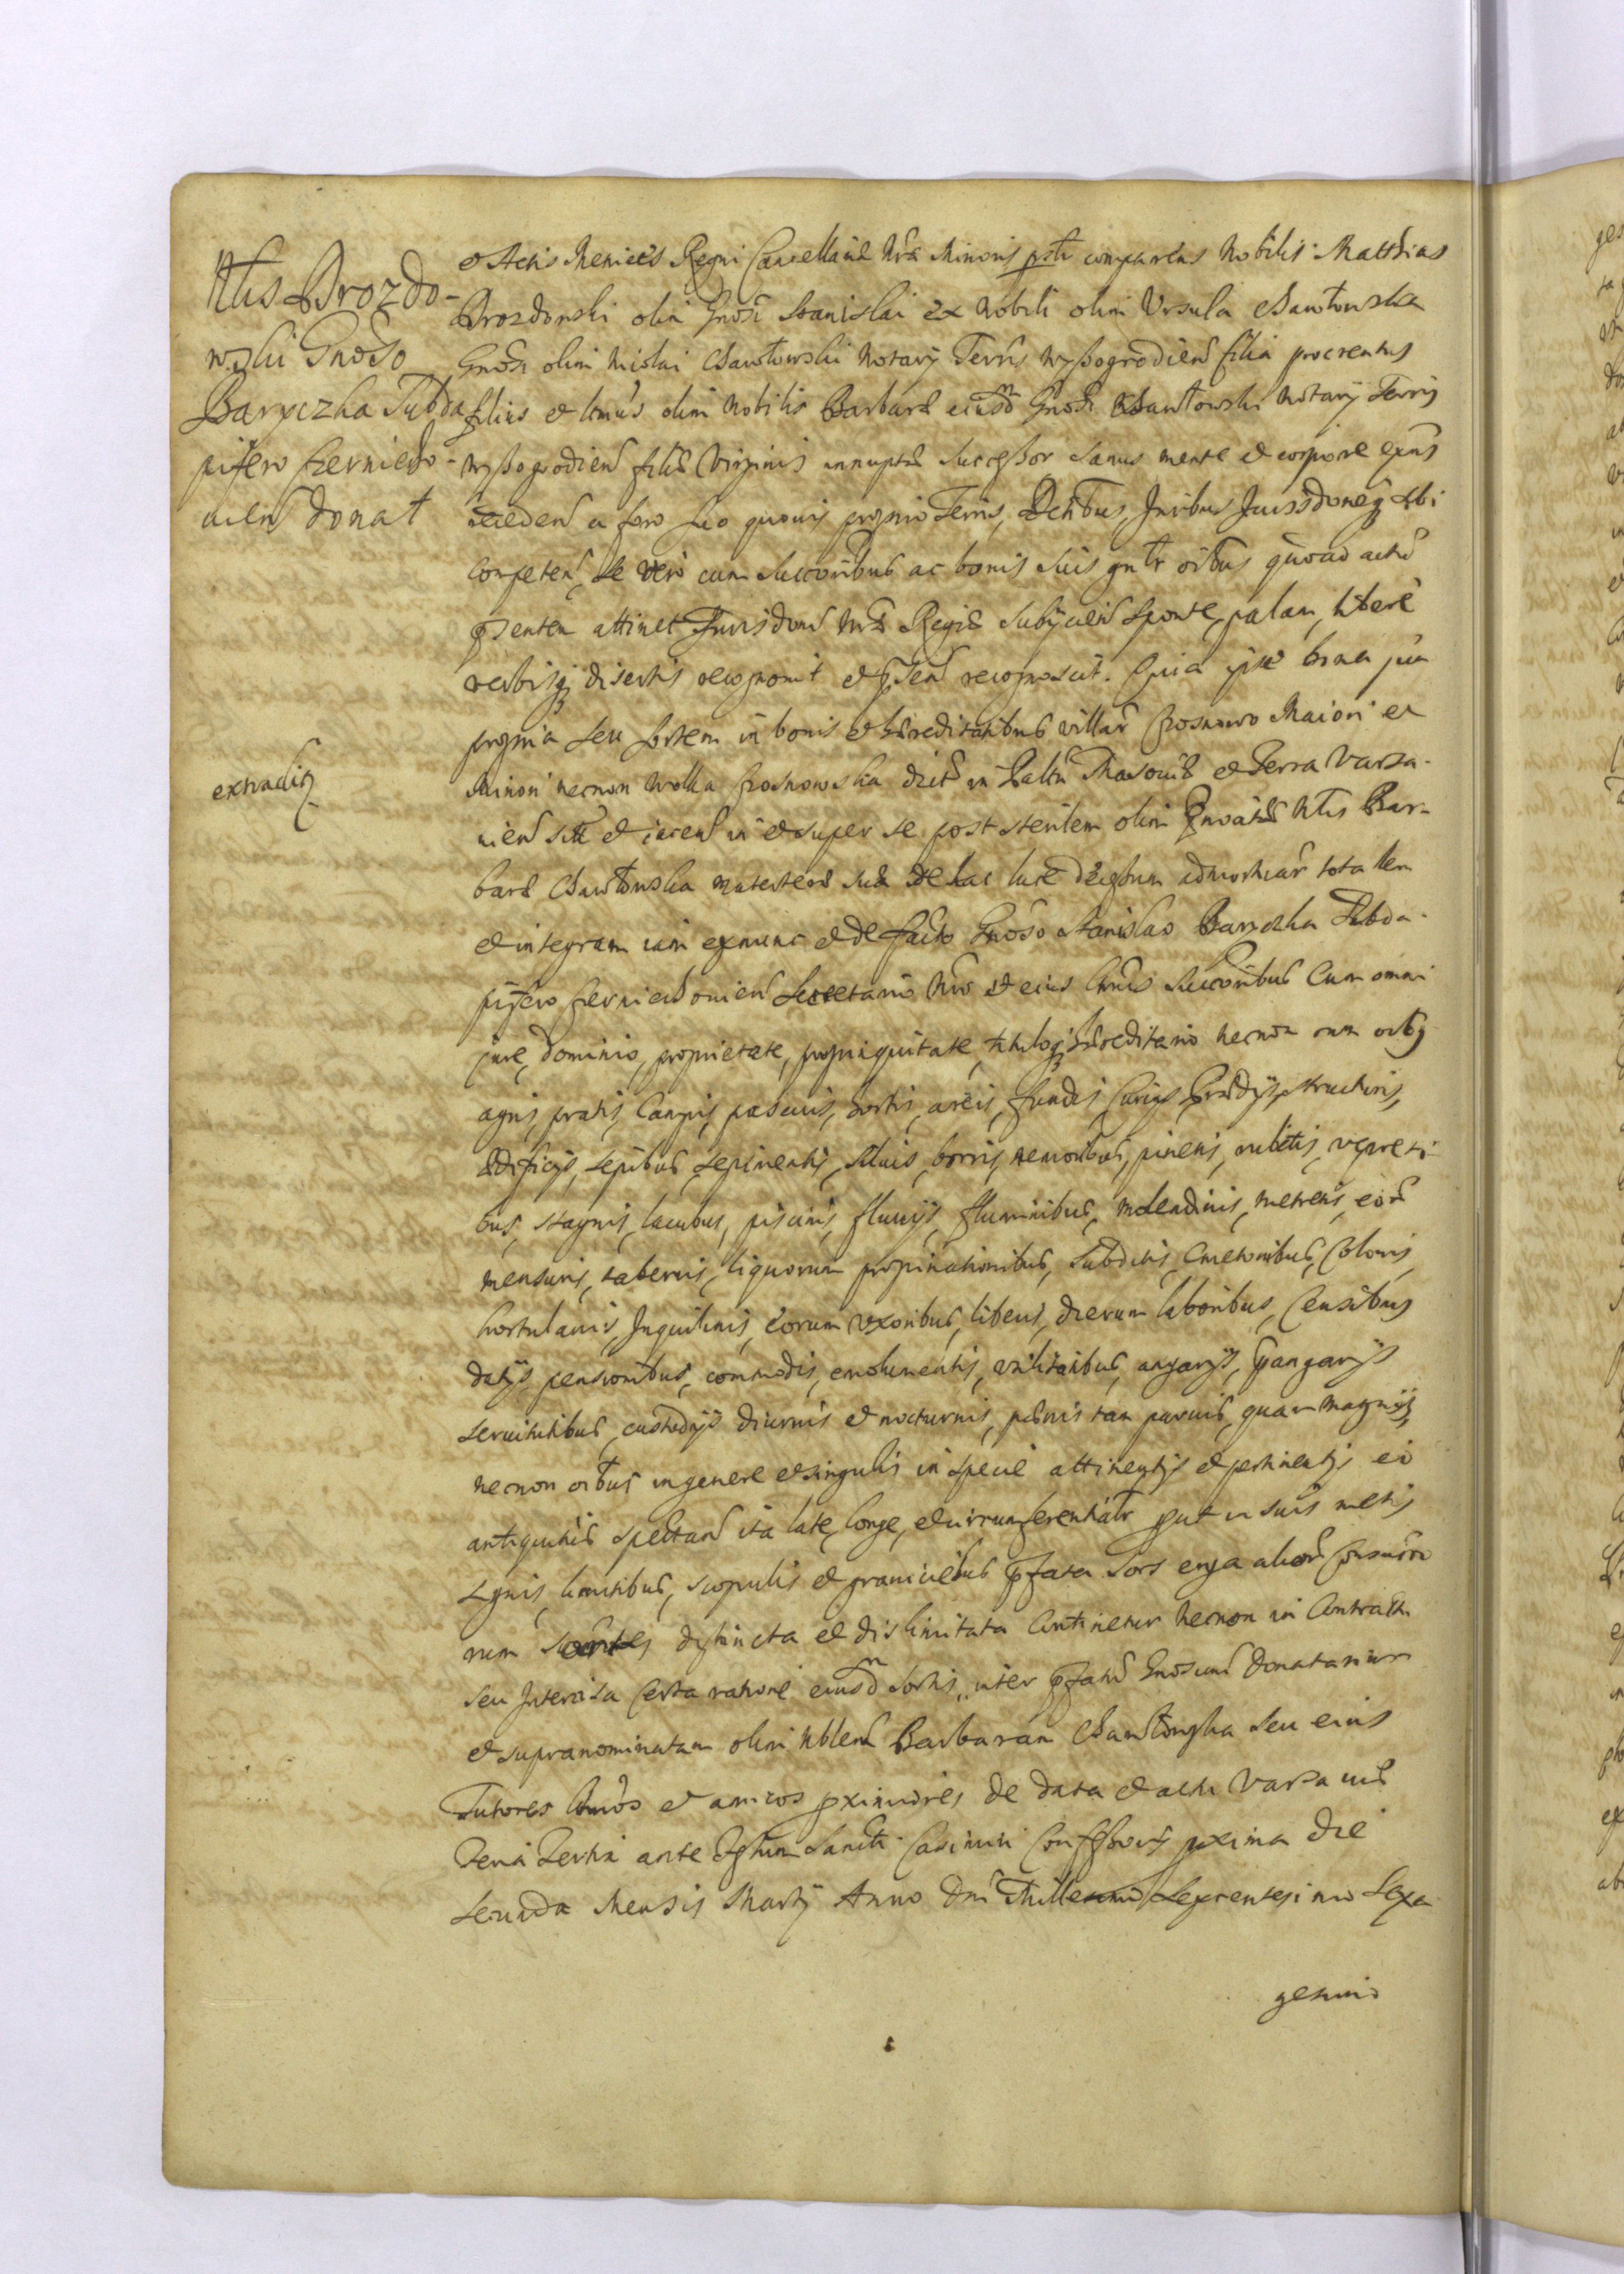 Nlis Drozdo-
wski Gnoso
Baryczka Subda
pifero Czerniecho-
uien donat
extradit
et Actis Metrices Regni Cancellariæ Nræ Minoris pstr comparens Nobilis Matthias
Drozdowski olim Gnosi Stanislai ex Nobili olim Ursula
Gnosi olim notarij Terris Wyßogrodien filia procreatus
filius et olim Nobilis Barbaræ eiusdm Gnosi notarij Terris
Wyßogrodien filiæ Virginis innuptæ Successor Sanus mente et corpore exns
receden a foro suo quouis proprio Terris, Juribus sibi
competen, se vero cum Succoribus ac bonis suis gnlr oibus quoad actū
psentem attinet Jurisdoni Nræ Regiæ subijcien Sponte, palam, libere
verbisq disertis recognouit et psen recognoscit. Quia ipse bona sua
propria seu sortem in bonis et hæreditatibus villar Czosnowo Maiori et
Minori necnon Wolka Czosnowska dict in Paltu Masouiæ et Terra Varsa-
uien sit et iacen in et super se post sterilem olim Nlis Bar-
baræ materteræ suæ de hac luce decessum totalem
et integram iam exnunc et de facto Gnoso Stanislao Baryczka Subda-
pifero Czerniechouien Secretario Nro et eius Succoribus Cum omni
jure, dominio, proprietate, propinquitate, tituloq hæreditario necnon cum oibq
agris, pratis, Campis, pascuis, hortis, areis, fundis, Curijs, Prædijs, structuris,
Ædificijs, sepibus, sepimentis, Siluis, borris, nemoribus, pinetis, rubetis, vepreti-
bus, stagnis, lacubus, piscinis, fluuijs, fluminibus, molendinis, metretis, eor
mensuris, tabernis, liquorum propinationibus, Subditis, Cmetonibus, Colonis,
hortulanis, Inquilinis, eorum vxoribus, liberis, dierum laboribus, Censibus
datijs, pensionibus, commodis, emolumentis, vtilitatibus, angarijs, pangarijs
seruitutibus, custodijs diurnis et nocturnis, pænis tam paruis, quam magnis,
necnon oibus in genere et singulis in specie attinentijs et pertinentijs eo
antiquitus spectan ita late, longe, et circumferentialr put in suis metis
signis, limitibus, scopulis et graniciebus pfata Sors erga alior Consuccoru
rum sortes distincta et dislimitata Continetur necnon in Contractu
seu Intercisa Certa ratione eiusdm Sortis, inter pfatu Gnosum Donatarium
et supranominatam olim Nblem Barbaram seu eius
Tutores et amicos pximiores de data et actu Varsauiæ
Feria Tertia ante Festum Sancti Casimiri Confessoris pxima die
Secunda Mensis Martij Anno Dni Millesimo Sexcentesimo Sexa-
gesimo